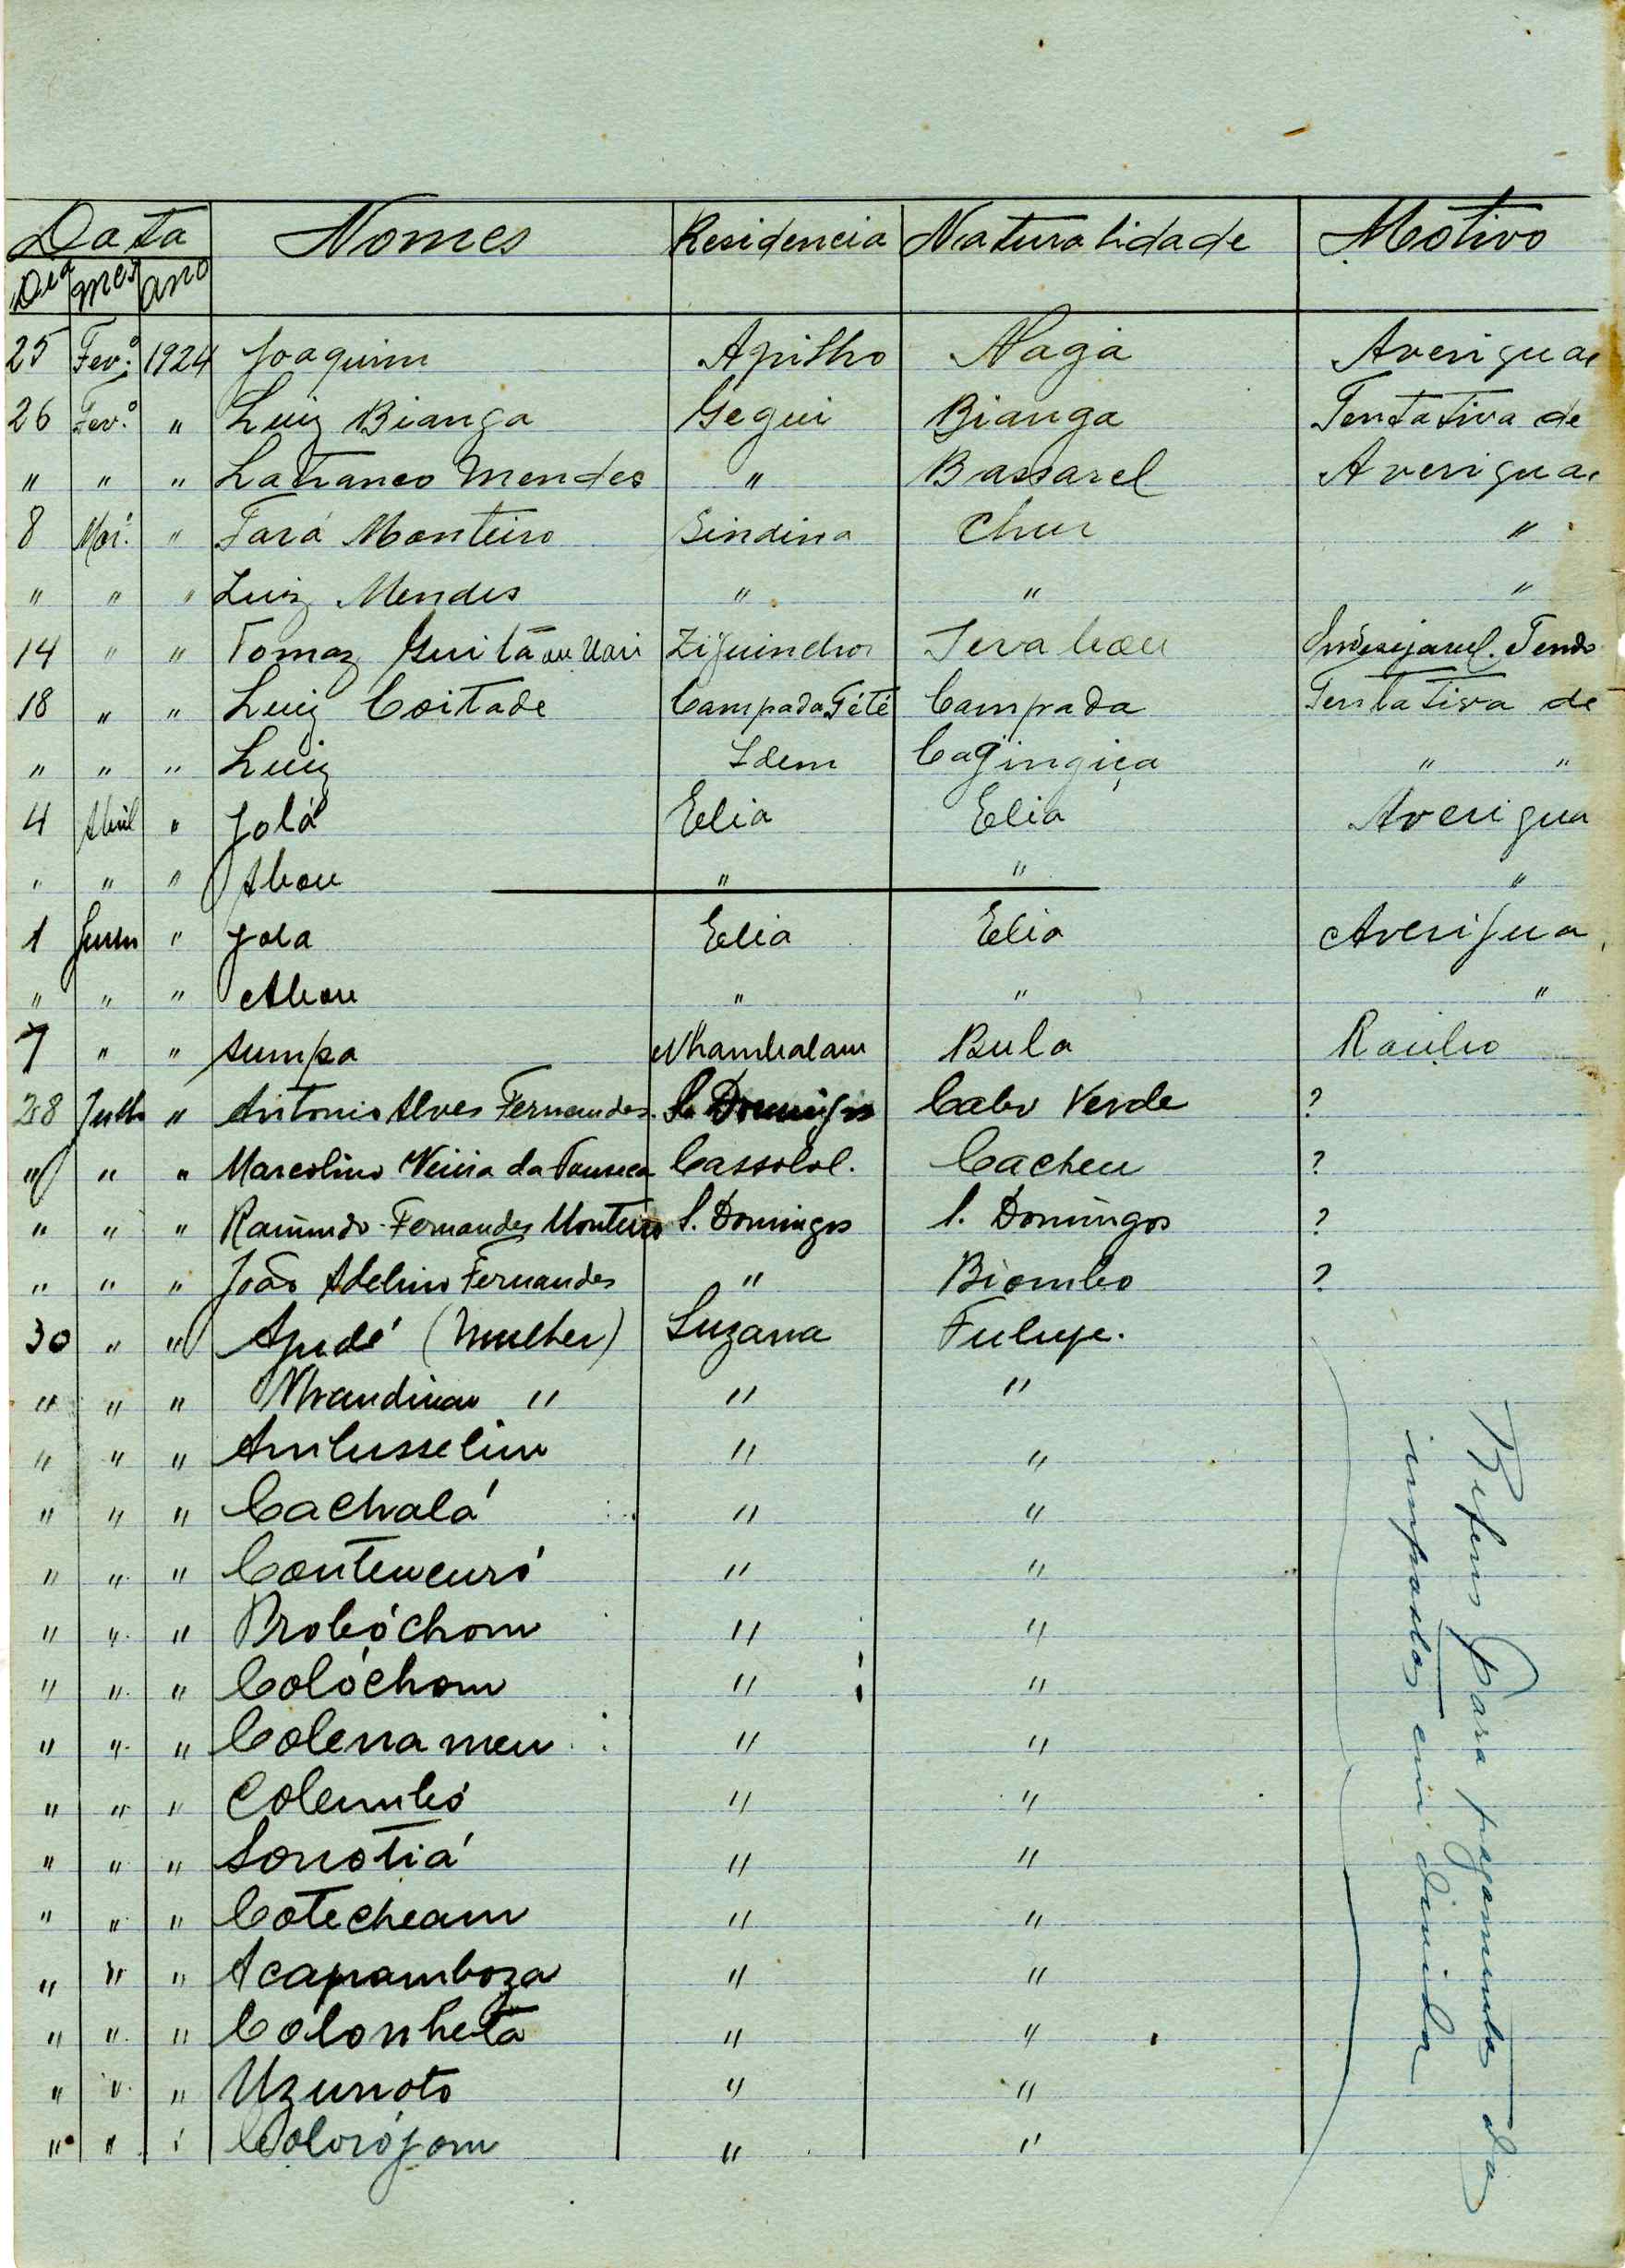 Data Nomes Residencia Naturalidade Motivo
Dia mes ano
25 Fev.º 1924 Joaquim Apilho Naga Averigua
26 Fev.º " Luiz Bianga Gegui Bianga Tentativa de
" " " Latranco Mendes " Bassarel Averigua
8 Mar. " Tará Monteiro Sindina Chur "
" " " Luiz Mendes " " "
14 " " Tomaz ou Uari Ziguinchor Indesejavel. Tendo
18 " " Luiz Coitade Campada Tété Campada Tentativa de
" " " Luiz Idem Cagingiça " "
4 Abril " Jolá Elia Elia Averigua
" " " Abou " " "
1 Junh " Jola Elia Elia Averigua
" " " Abou " " "
7 " " Sumpa Nhambalam Bula Roubo
28 Julh " Antonio Alves Fernandes S. Domingos Cabo Verde ?
" " " Marcolino Vieira da Fonseca Cassolol. Cacheu ?
" " " Raimundo Fernandes Monteiro S. Domingos S. Domingos ?
" " " João Adelino Fernandes " Biombo ?
30 " " Apudé (Mulher) Suzana Fulupe.
" " " Nhandinau " " "
" " " Ambusselim " "
" " " Cachalá " "
" " " Contencuró " "
" " " Probóchom " "
" " " Colóchom " "
" " " Colenameu " "
" " " Colembó " "
" " " Sonotiá " "
" " " Cotecheam " "
" " " Acapamboza " "
" " " Colonheta " "
" " " Uzunoto " "
" " " Colorójom " "
Refens para pagamento do
impostos em divida